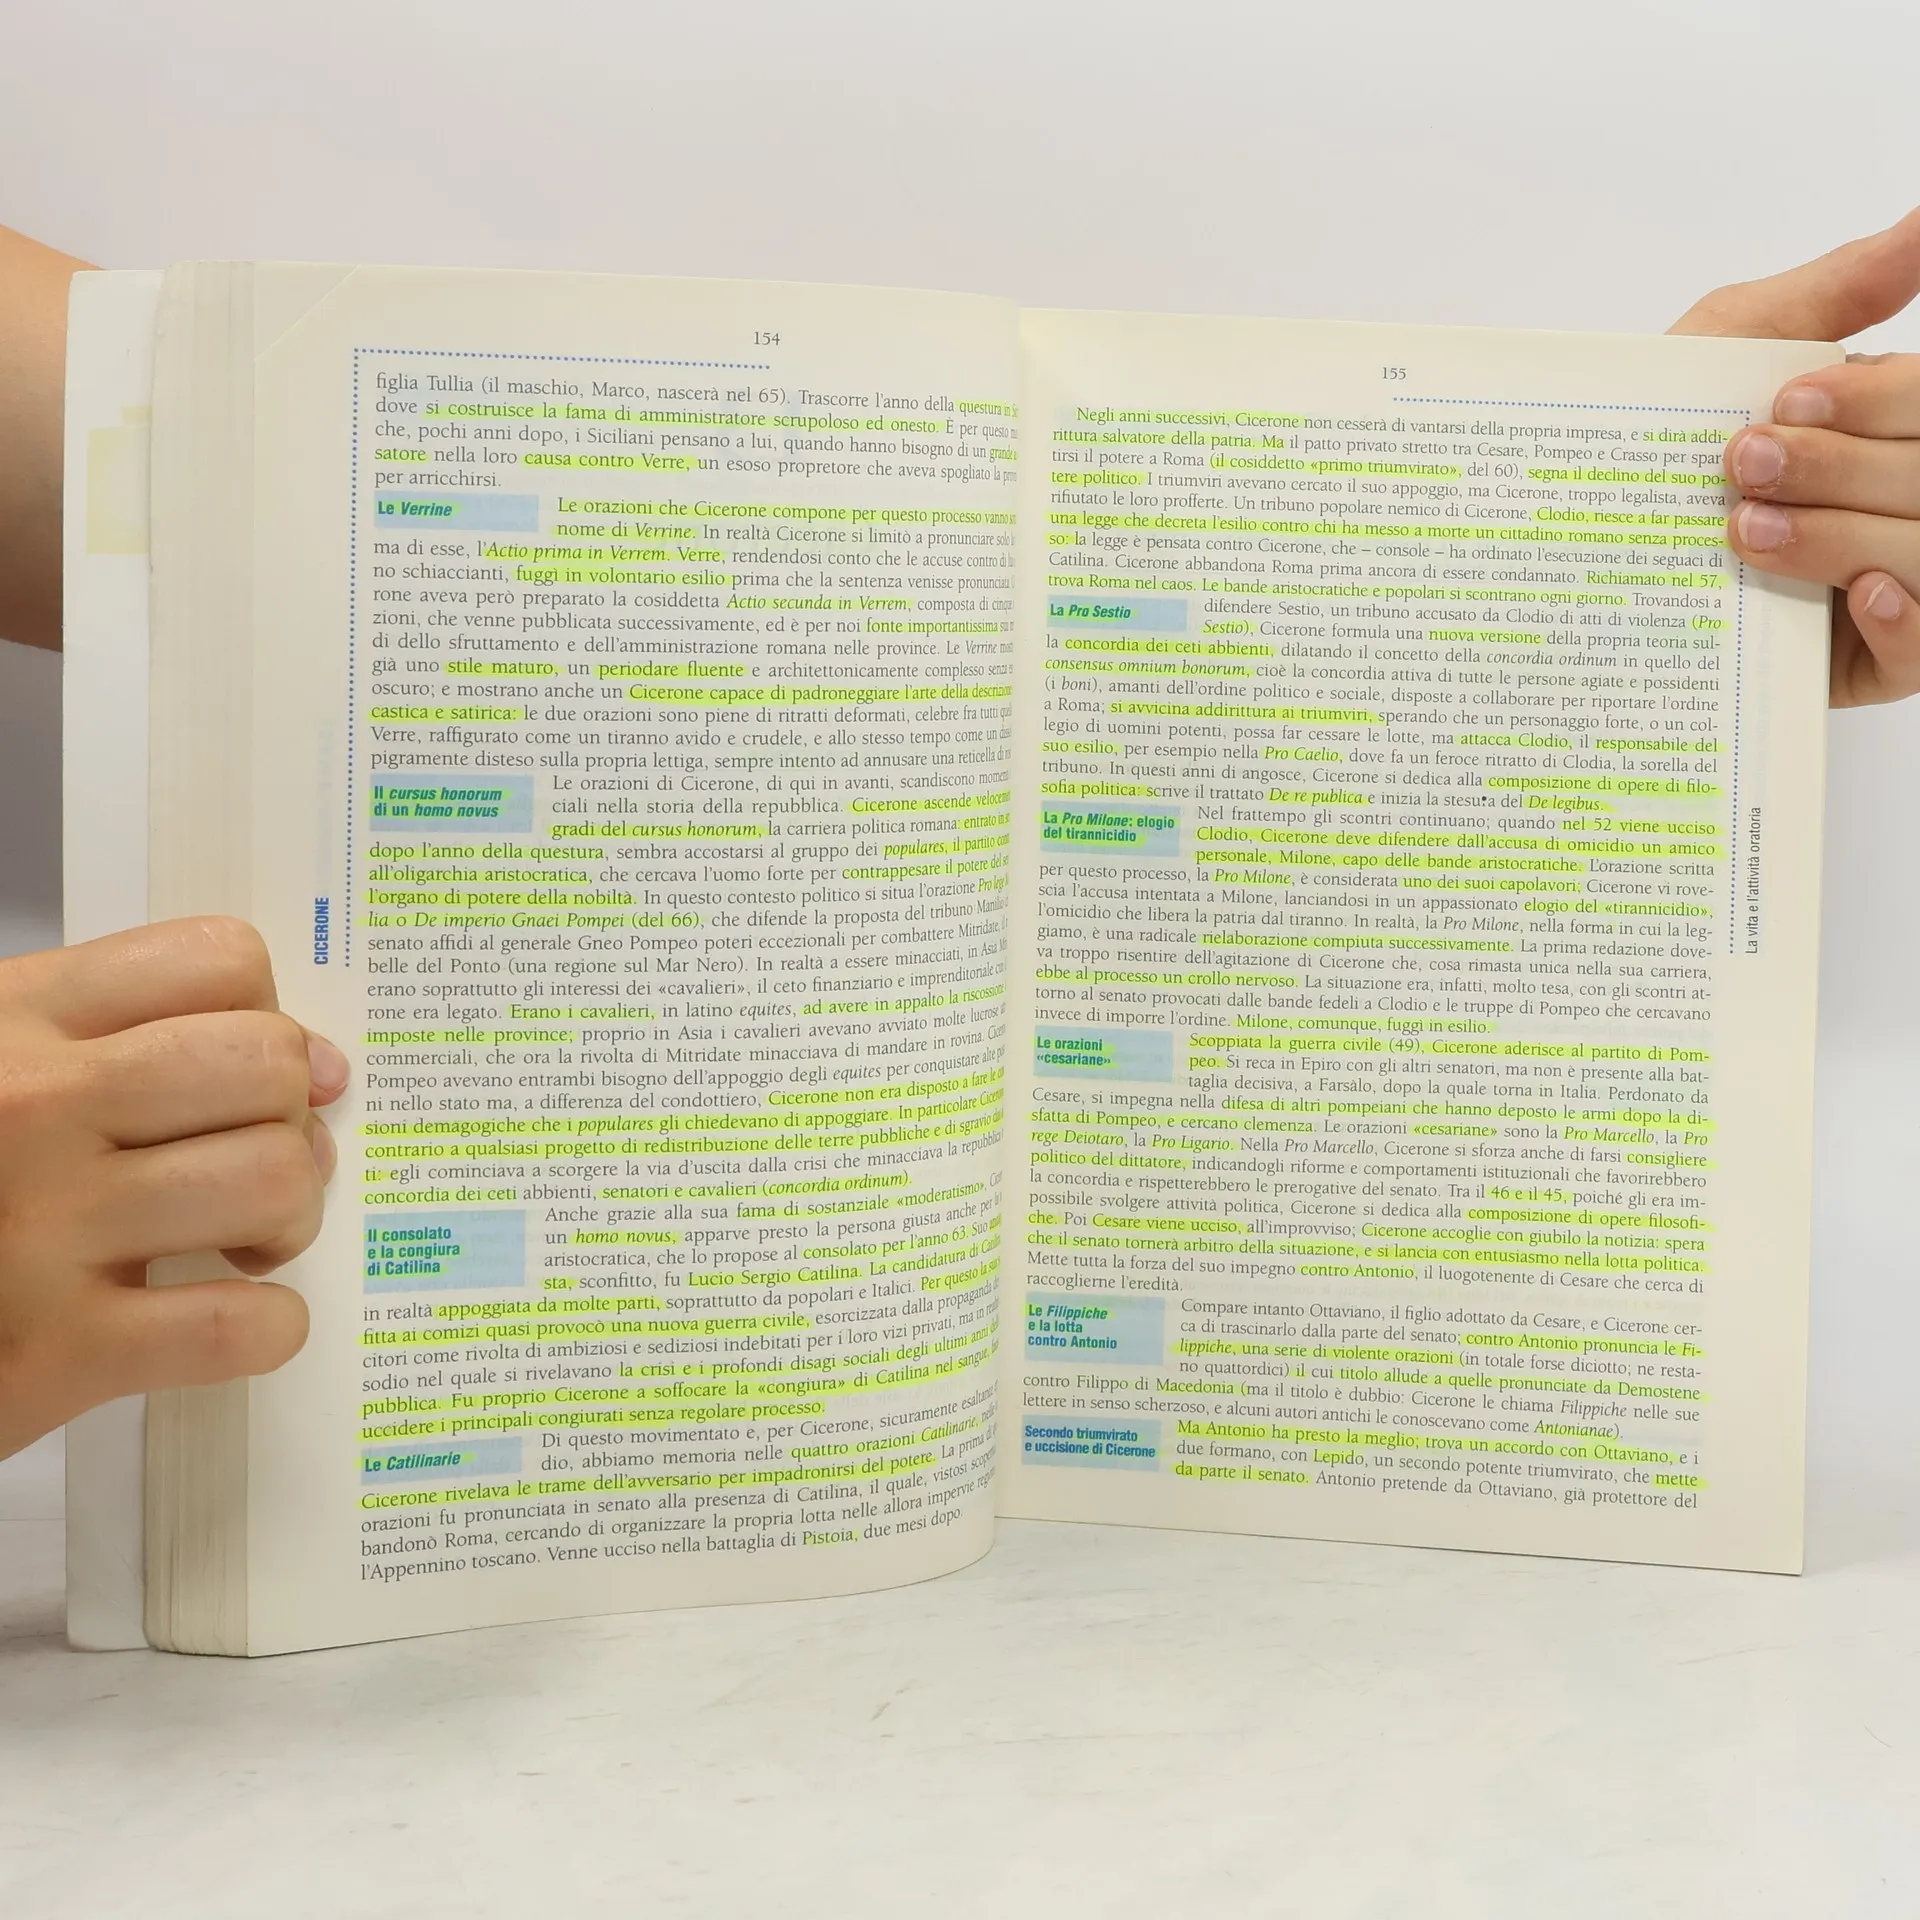 154
figlia Tullia (il maschio, Marco, nascerà nel 65). Trascorre l'anno della questura in
dove si costruisce la fama di amministratore scrupoloso ed onesto. È per questo
che, pochi anni dopo, i Siciliani pensano a lui, quando hanno bisogno di un grande
satore nella loro causa contro Verre, un esoso propretore che aveva spogliato la
per arricchirsi.
Le Verrine
Le orazioni che Cicerone compone per questo processo vanno
nome di Verrine. In realtà Cicerone si limitò a pronunciare solo
ma di esse, l'Actio prima in Verrem. Verre, rendendosi conto che le accuse contro di
no schiaccianti, fuggì in volontario esilio prima che la sentenza venisse pronunciata.
rone aveva però preparato la cosiddetta Actio secunda in Verrem, composta di cinque
zioni, che venne pubblicata successivamente, ed è per noi fonte importantissima
di dello sfruttamento e dell'amministrazione romana nelle province. Le Verrine
già uno stile maturo, un periodare fluente e architettonicamente complesso senza
oscuro; e mostrano anche un Cicerone capace di padroneggiare l'arte della descrizione
castica e satirica: le due orazioni sono piene di ritratti deformati, celebre fra tutti
Verre, raffigurato come un tiranno avido e crudele, e allo stesso tempo come un
pigramente disteso sulla propria lettiga, sempre intento ad annusare una reticella di
Il cursus honorum
di un homo novus
Le orazioni di Cicerone, di qui in avanti, scandiscono
ciali nella storia della repubblica. Cicerone ascende
gradi del cursus honorum, la carriera politica romana: entrato in
dopo l'anno della questura, sembra accostarsi al gruppo dei populares, il partito
all'oligarchia aristocratica, che cercava l'uomo forte per contrappesare il potere del
l'organo di potere della nobiltà. In questo contesto politico si situa l'orazione Pro lege
lia o De imperio Gnaei Pompei (del 66), che difende la proposta del tribuno
senato affidi al generale Gneo Pompeo poteri eccezionali per combattere Mitridate,
belle del Ponto (una regione sul Mar Nero). In realtà a essere minacciati, in Asia
erano soprattutto gli interessi dei «cavalieri», il ceto finanziario e imprenditoriale
rone era legato. Erano i cavalieri, in latino equites, ad avere in appalto la riscossione
imposte nelle province; proprio in Asia i cavalieri avevano avviato molte lucrose
commerciali, che ora la rivolta di Mitridate minacciava di mandare in rovina.
Pompeo avevano entrambi bisogno dell'appoggio degli equites per conquistare alte
ni nello stato ma, a differenza del condottiero, Cicerone non era disposto a fare le
sioni demagogiche che i populares gli chiedevano di appoggiare. In particolare
contrario a qualsiasi progetto di redistribuzione delle terre pubbliche e di sgravio
ti: egli cominciava a scorgere la via d'uscita dalla crisi che minacciava la repubblica
concordia dei ceti abbienti, senatori e cavalieri (concordia ordinum).
Il consolato
e la congiura
di Catilina
Anche grazie alla sua fama di sostanziale «moderatismo»,
un homo novus, apparve presto la persona giusta anche per
aristocratica, che lo propose al consolato per l'anno 63. Suo
sta, sconfitto, fu Lucio Sergio Catilina. La candidatura di
in realtà appoggiata da molte parti, soprattutto da popolari e Italici. Per questo la
fitta ai comizi quasi provocò una nuova guerra civile, esorcizzata dalla propaganda
citori come rivolta di ambiziosi e sediziosi indebitati per i loro vizi privati, ma in
sodio nel quale si rivelavano la crisi e i profondi disagi sociali degli ultimi anni
pubblica. Fu proprio Cicerone a soffocare la «congiura» di Catilina nel sangue,
uccidere i principali congiurati senza regolare processo.
Le Catilinarie
Di questo movimentato e, per Cicerone, sicuramente esaltante
dio, abbiamo memoria nelle quattro orazioni Catilinarie,
Cicerone rivelava le trame dell'avversario per impadronirsi del potere. La prima
orazioni fu pronunciata in senato alla presenza di Catilina, il quale, vistosi
bandonò Roma, cercando di organizzare la propria lotta nelle allora impervie
l'Appennino toscano. Venne ucciso nella battaglia di Pistoia, due mesi dopo.
CICERONE
155
Negli anni successivi, Cicerone non cesserà di vantarsi della propria impresa, e si dirà addi-
rittura salvatore della patria. Ma il patto privato stretto tra Cesare, Pompeo e Crasso per spar-
tirsi il potere a Roma (il cosiddetto «primo triumvirato», del 60), segna il declino del suo po-
tere politico. I triumviri avevano cercato il suo appoggio, ma Cicerone, troppo legalista, aveva
rifiutato le loro profferte. Un tribuno popolare nemico di Cicerone, Clodio, riesce a far passare
una legge che decreta l'esilio contro chi ha messo a morte un cittadino romano senza proces-
so: la legge è pensata contro Cicerone, che – console – ha ordinato l'esecuzione dei seguaci di
Catilina. Cicerone abbandona Roma prima ancora di essere condannato. Richiamato nel 57,
trova Roma nel caos. Le bande aristocratiche e popolari si scontrano ogni giorno. Trovandosi a
La Pro Sestio
difendere Sestio, un tribuno accusato da Clodio di atti di violenza (Pro
Sestio), Cicerone formula una nuova versione della propria teoria sul-
la concordia dei ceti abbienti, dilatando il concetto della concordia ordinum in quello del
consensus omnium bonorum, cioè la concordia attiva di tutte le persone agiate e possidenti
(i boni), amanti dell'ordine politico e sociale, disposte a collaborare per riportare l'ordine
a Roma; si avvicina addirittura ai triumviri, sperando che un personaggio forte, o un col-
legio di uomini potenti, possa far cessare le lotte, ma attacca Clodio, il responsabile del
suo esilio, per esempio nella Pro Caelio, dove fa un feroce ritratto di Clodia, la sorella del
tribuno. In questi anni di angosce, Cicerone si dedica alla composizione di opere di filo-
sofia politica: scrive il trattato De re publica e inizia la stesura del De legibus.
La Pro Milone: elogio
del tirannicidio
Nel frattempo gli scontri continuano; quando nel 52 viene ucciso
Clodio, Cicerone deve difendere dall'accusa di omicidio un amico
personale, Milone, capo delle bande aristocratiche. L'orazione scritta
per questo processo, la Pro Milone, è considerata uno dei suoi capolavori; Cicerone vi rove-
scia l'accusa intentata a Milone, lanciandosi in un appassionato elogio del «tirannicidio»,
l'omicidio che libera la patria dal tiranno. In realtà, la Pro Milone, nella forma in cui la leg-
giamo, è una radicale rielaborazione compiuta successivamente. La prima redazione dove-
va troppo risentire dell'agitazione di Cicerone che, cosa rimasta unica nella sua carriera,
ebbe al processo un crollo nervoso. La situazione era, infatti, molto tesa, con gli scontri at-
torno al senato provocati dalle bande fedeli a Clodio e le truppe di Pompeo che cercavano
invece di imporre l'ordine. Milone, comunque, fuggì in esilio.
Le orazioni
«cesariane»
Scoppiata la guerra civile (49), Cicerone aderisce al partito di Pom-
peo. Si reca in Epiro con gli altri senatori, ma non è presente alla bat-
taglia decisiva, a Farsàlo, dopo la quale torna in Italia. Perdonato da
Cesare, si impegna nella difesa di altri pompeiani che hanno deposto le armi dopo la di-
sfatta di Pompeo, e cercano clemenza. Le orazioni «cesariane» sono la Pro Marcello, la Pro
rege Deiotaro, la Pro Ligario. Nella Pro Marcello, Cicerone si sforza anche di farsi consigliere
politico del dittatore, indicandogli riforme e comportamenti istituzionali che favorirebbero
la concordia e rispetterebbero le prerogative del senato. Tra il 46 e il 45, poiché gli era im-
possibile svolgere attività politica, Cicerone si dedica alla composizione di opere filosofi-
che. Poi Cesare viene ucciso, all'improvviso; Cicerone accoglie con giubilo la notizia: spera
che il senato tornerà arbitro della situazione, e si lancia con entusiasmo nella lotta politica.
Mette tutta la forza del suo impegno contro Antonio, il luogotenente di Cesare che cerca di
raccoglierne l'eredità.
Le Filippiche
e la lotta
contro Antonio
Compare intanto Ottaviano, il figlio adottato da Cesare, e Cicerone cer-
ca di trascinarlo dalla parte del senato; contro Antonio pronuncia le Fi-
lippiche, una serie di violente orazioni (in totale forse diciotto; ne resta-
no quattordici) il cui titolo allude a quelle pronunciate da Demostene
contro Filippo di Macedonia (ma il titolo è dubbio: Cicerone le chiama Filippiche nelle sue
lettere in senso scherzoso, e alcuni autori antichi le conoscevano come Antonianae).
Secondo triumvirato
e uccisione di Cicerone
Ma Antonio ha presto la meglio; trova un accordo con Ottaviano, e i
due formano, con Lepido, un secondo potente triumvirato, che mette
da parte il senato. Antonio pretende da Ottaviano, già protettore del
La vita e l'attività oratoria